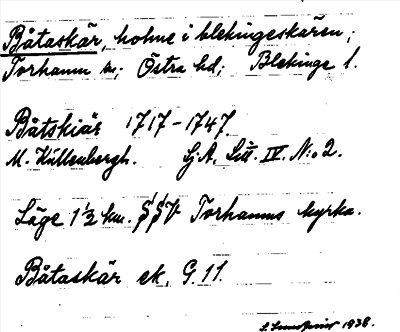 Båtaskär, holme i blekingeskären;
Torhamn sn; Östra hd; Blekinge l.
Båtskiär 1717-1747.
M. Küllenbergh. Sj.A. Litt. IV. N:o 2.
Läge 1½ km. SSV Torhamns kyrka.
Båtaskär ek. G.11.
1938.